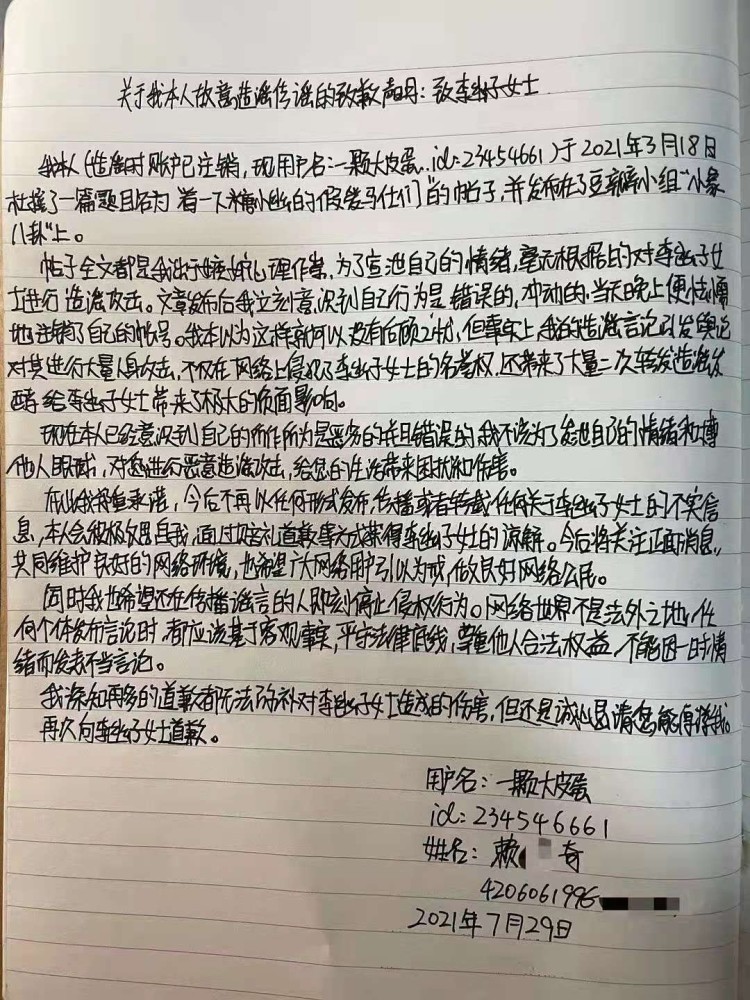 关于我本人故意造谣传谣的致歉声明：致李幽子女士
我本人（造谣时账户已注销，现用户名：一颗大皮蛋，id：23454661）于2021年3月18日
杜撰了一篇题目名为"看一下糊小幽的假爱马仕们"的帖子，并发布在了豆瓣小组"小象
八卦"上。
帖子全文都是我出于嫉妒心理作祟，为了宣泄自己的情绪，毫无根据的对李幽子女
士进行造谣攻击。文章发布后我立刻意识到自己行为是错误的，冲动的，当天晚上便慌忙
地注销了自己的帐号。我本以为这样就可以没有后顾之忧，但事实上，我的造谣言论引发舆论
对其进行大量人身攻击，不仅在网络上侵犯了李幽子女士的名誉权，还带来了大量二次转发造谣发
酵给李幽子女士带来了极大的负面影响。
现在本人已经意识到自己的所作所为是恶劣的并且错误的，我不该为了发泄自己的情绪和博
他人眼球，对您进行恶意造谣攻击，给您的生活带来困扰和伤害。
在此我郑重承诺，今后不再以任何形式发布，传播或者转载任何关于李幽子女士的不实信
息，本人会积极反思自我，通过赔礼道歉等方式获得李幽子女士的谅解。今后将关注正面消息，
共同维护良好的网络环境，也希望广大网络用户引以为戒，做良好网络公民。
同时我也希望还在传播谣言的人即刻停止侵权行为。网络世界不是法外之地，任
何个体发布言论时，都应该基于客观事实，平守法律底线，尊重他人合法权益，不能因一时情
绪而发表不当言论。
我深知再多的道歉都无法弥补对李幽子女士造成的伤害，但还是诚心恳请您能原谅我。
再次向李幽子女士道歉。
用户名：一颗大皮蛋
id：234546661
姓名：赖 奇
4206061996
2021年7月29日